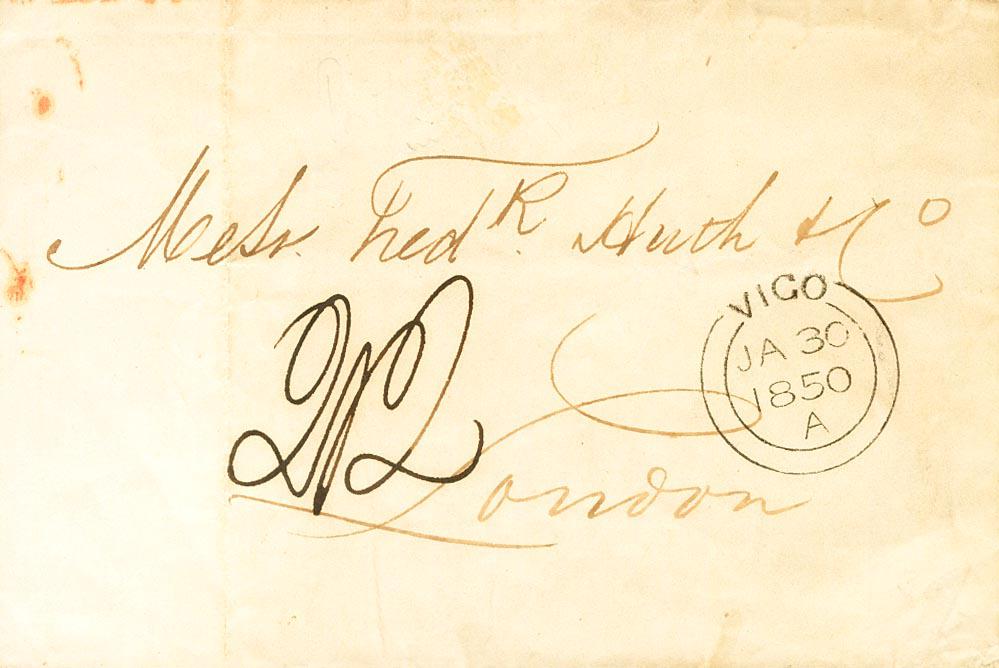 Messrs. Fredk. Huth & Co
VIGO
JA 30
1850
A
2/2
London